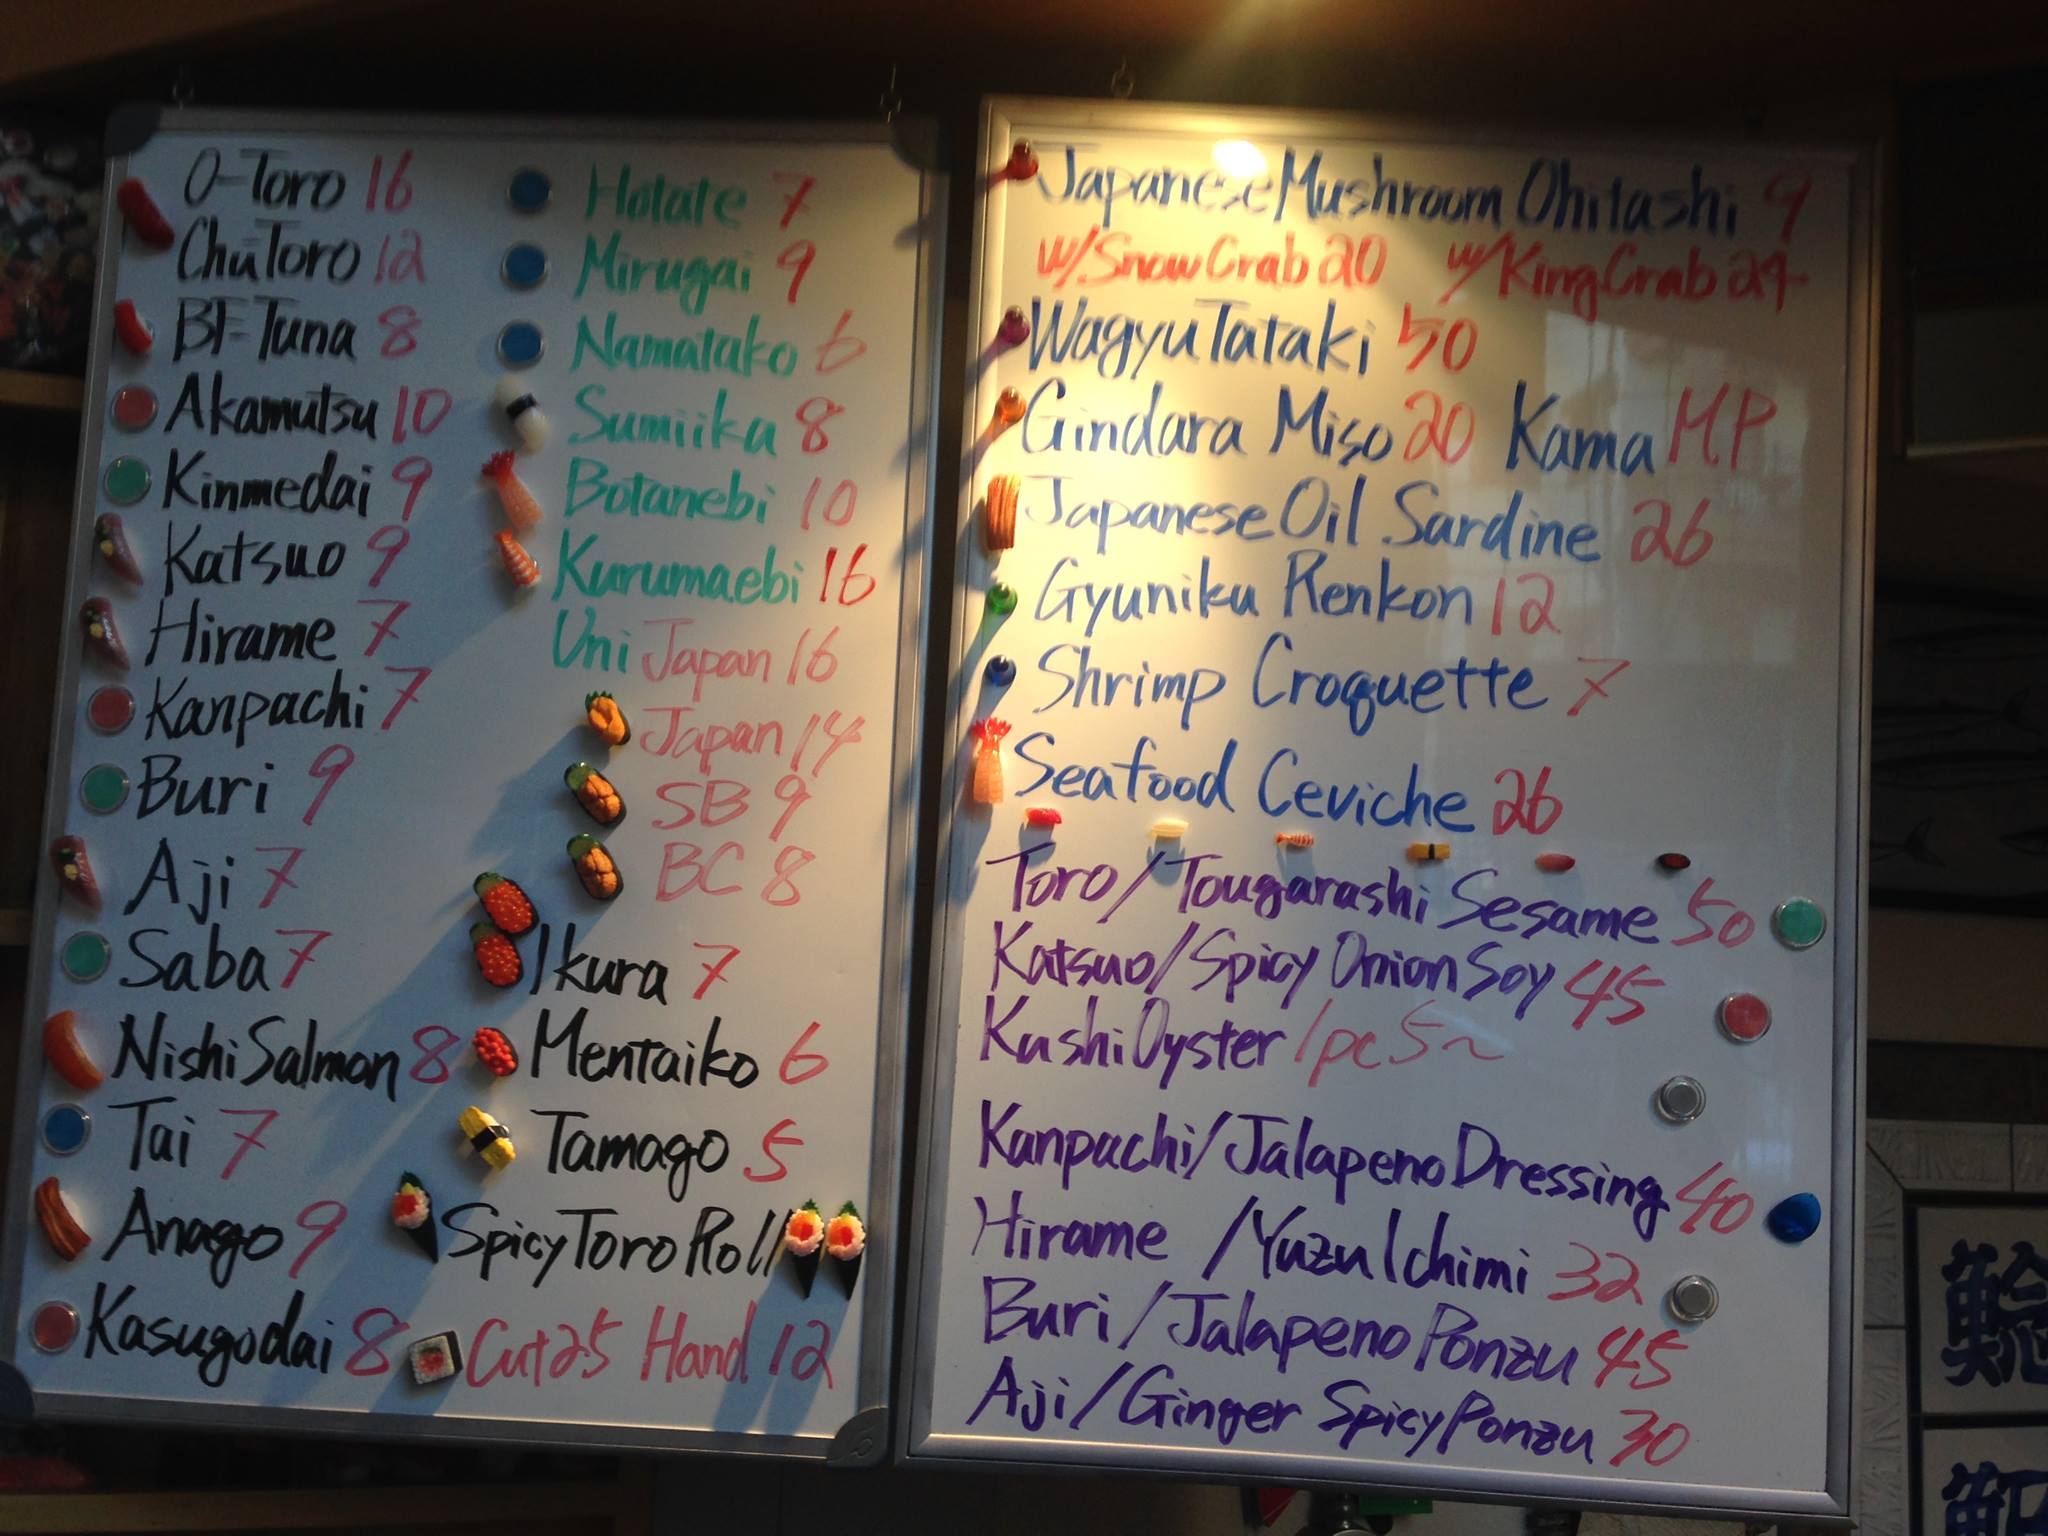 O-Toro 16
ChuToro 12
BF Tuna 8
Akamutsu 10
Kinmedai 9
Katsuo 9
Hirame 7
Kanpachi 7
Buri 9
Aji 7
Saba 7
Nishi Salmon 8
Tai 7
Anago 9
Kasugodai 8
Hotate 7
Mirugai 9
Namatako 6
Sumiika 8
Botanebi 10
Kurumaebi 16
Uni Japan 16
Japan 14
SB 9
BC 8
Ikura 7
Mentaiko 6
Tamago 5
Spicy Toro Roll
Cut 25 Hand 12
Japanese Mushroom Ohitashi 9
w/Snow Crab 20 w/King Crab 24
Wagyu Tataki 50
Gindara Miso 20 Kama M.P
Japanese Oil Sardine 26
Gyuniku Renkon 12
Shrimp Croquette 7
Seafood Ceviche 26
Toro/Tougarashi Sesame 50
Katsuo/Spicy Onion Soy 45
Kushi Oyster 1pc 5~
Kanpachi/Jalapeno Dressing 40
Hirame /Yuzu Ichimi 32
Buri/Jalapeno Ponzu 45
Aji/Ginger Spicy Ponzu 30